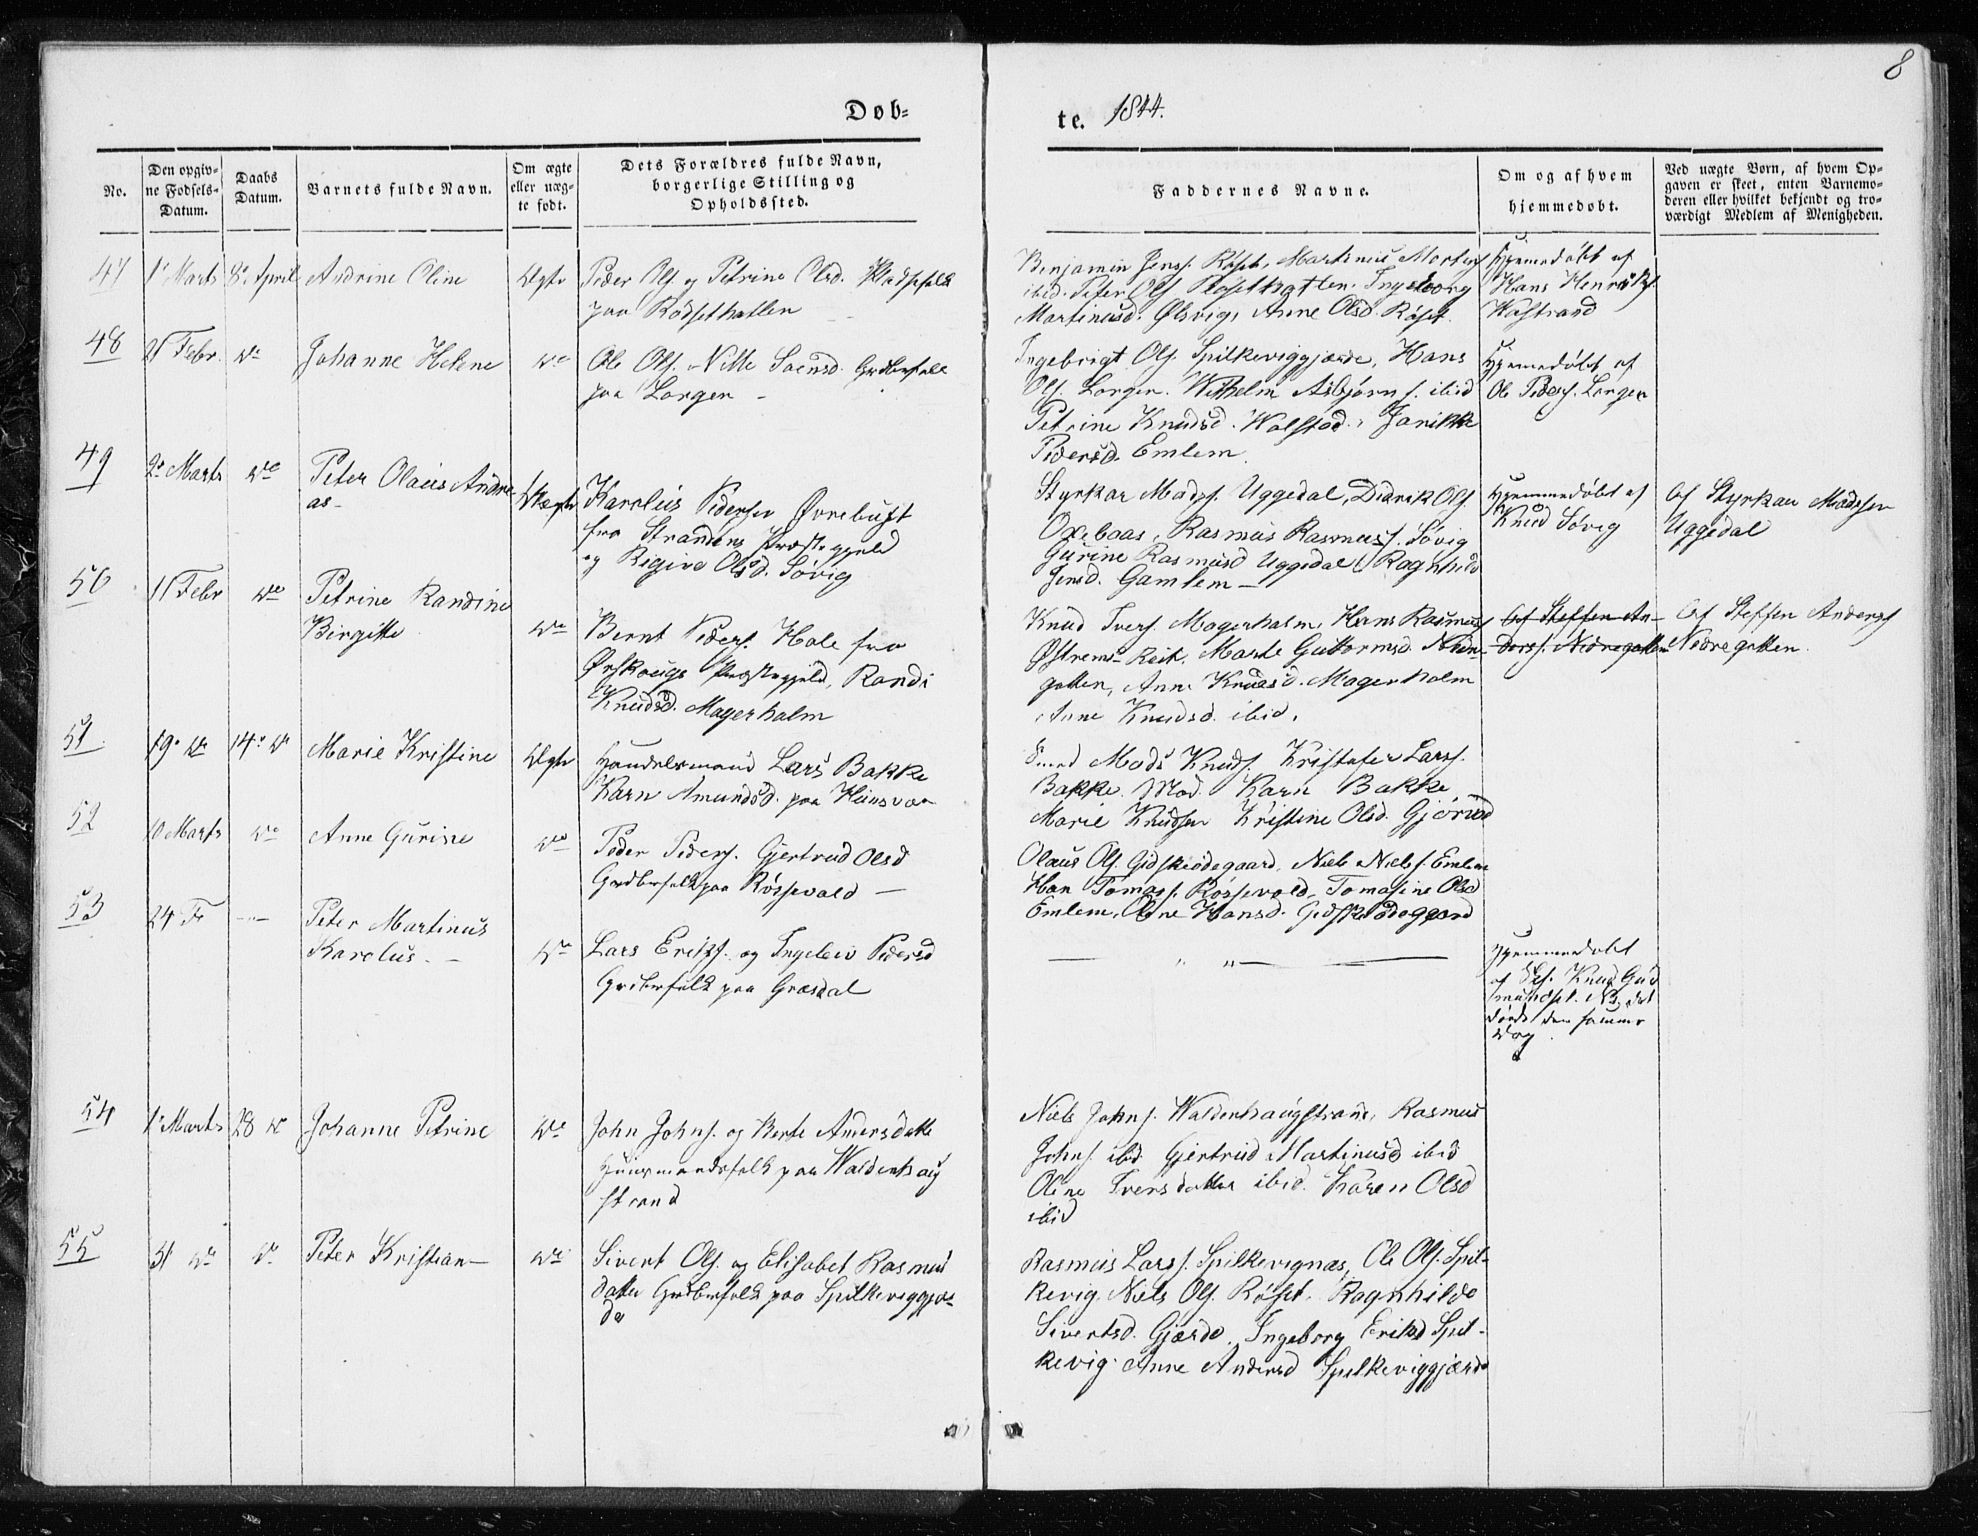 8
Døb-
te. 1844.
No.
Den opgiv-
ne Fødsels-
Datum.
Daabs
Datum.
Barnets fulde Navn.
Om ægte
eller uæg-
te født.
Dets Forældres fulde Navn,
borgerlige Stilling og
Opholdssted.
Faddernes Navne.
Om og af hvem
hjemmedøbt.
Ved uægte Børn, af hvem Op-
gaven er skeet, enten Barnemo-
deren eller hvilket bekjendt og tro-
værdigt Medlem af Menigheden.
47 1' Marts 8' April Andrine Oline Ægte Peder Ols. og Petrine Olsd. Pladsfolk
paa Rødsethatlen
Benjamin Jens. Røset, Martinus Mortens
ibid. Peter Ols. Røsethatlen. Ingeborg
Martinusd. Ølsvig, Anne Olsd. Røset.
Hjemmedøbt af
Hans Henriks.
48 21 Febr. do Johanne Helene do Ole Ols. Nille Soensd. Grdbrfolk
paa Lorgen -
Ingebrigt Ols. Spilkeviggjærde, Hans
Ols. Lorgen. Wilhelm Asbjørns. ibid
Petrine Knudsd. Walstad, Janikke
Pedersd. Emlem.
Hjemmedøbt af
Ole Peders. Lorgen
49 2' Marts do Peter Olaus Andre-
as- Uægte Karolus Pedersen Ørrebust
fra Strandens Præstegjeld
og Regine Olsd. Søvig
Styrkar Mads. Uggedal, Didrik Ols.
Oxebaas, Rasmus Rasmuss. Søvig
Gurine Rasmusd Uggedal, Ragnhild
Jensd. Gamlem -
Hjemmedøbt af
Knud Søvig
Af Styrkar Madssen
Uggedal
50 11 Febr do Petrine Randine
Birgitte do Bernt Peders. Hole fra
Ørskougs Præstegjeld, Randi
Knudsd. Magerholm
Knud Ivers. Magerholm, Hans Rasmuss
Marte Guttormsd. Nedre-
gotten, Anne Knudsd. Magerholm
Anne Knudsd. ibid.
Af Steffen An-
ders. Nedregotten
Af Steffen Anders
Nedregotten.
51 19' do 14' do Marie Kristine Ægte Handelsmand Lars Bakke
Karn Amundsd. paa
Mads Knuds. Kristofer Lars.
Bakke. Mad. Karn Bakke,
Marie Knudsen Kristine Olsd. Gjørud
52 10 Marts do Anne Gurine do Peder Peders. Gjertrud Olsd
Grdbrfolk paa Røssevald -
Olaus Ols. Gidskeødegaard, Niels Niels. Emlem
Han Tomass. Røssevold, Tomasine Olsd
Emlem, Oline Hansd. Gidskeødegaard
53 24 F -"- Peter Martinus
Karolus. - do Lars Eriks. og Ingelev Pedersd
Grdbrfolk paa Græsdal
Hjemmedøbt
af Knud Gud
mundset. NB. det
døde den samme
Dag.
54 1' Marts 28 do Johanne Petrine do John Johns. og Berte Andersdatte
Huusmandsfolk paa Waldenhaug
strand
Niels Johns. Waldenhaugstrand, Rasmus
Johns. ibid Gjertrud Martinusd ibid
Oline Iversdatter ibid. Karen Olsd
ibid
55 31 do do Peter Kristian- do Sivert Ols. og Elisabet Rasmus
datter Grdbrfolk paa Spilkeviggjær-
de
Rasmus Lars. Spilkevignæs, Ole Ols. Spil-
kevig. Niels Ols. Røset. Ragnhilde
Sivertsd. Gjærde. Ingeborg Eriksd Spil-
kevig. Anne Andersd Spilkeviggjærde